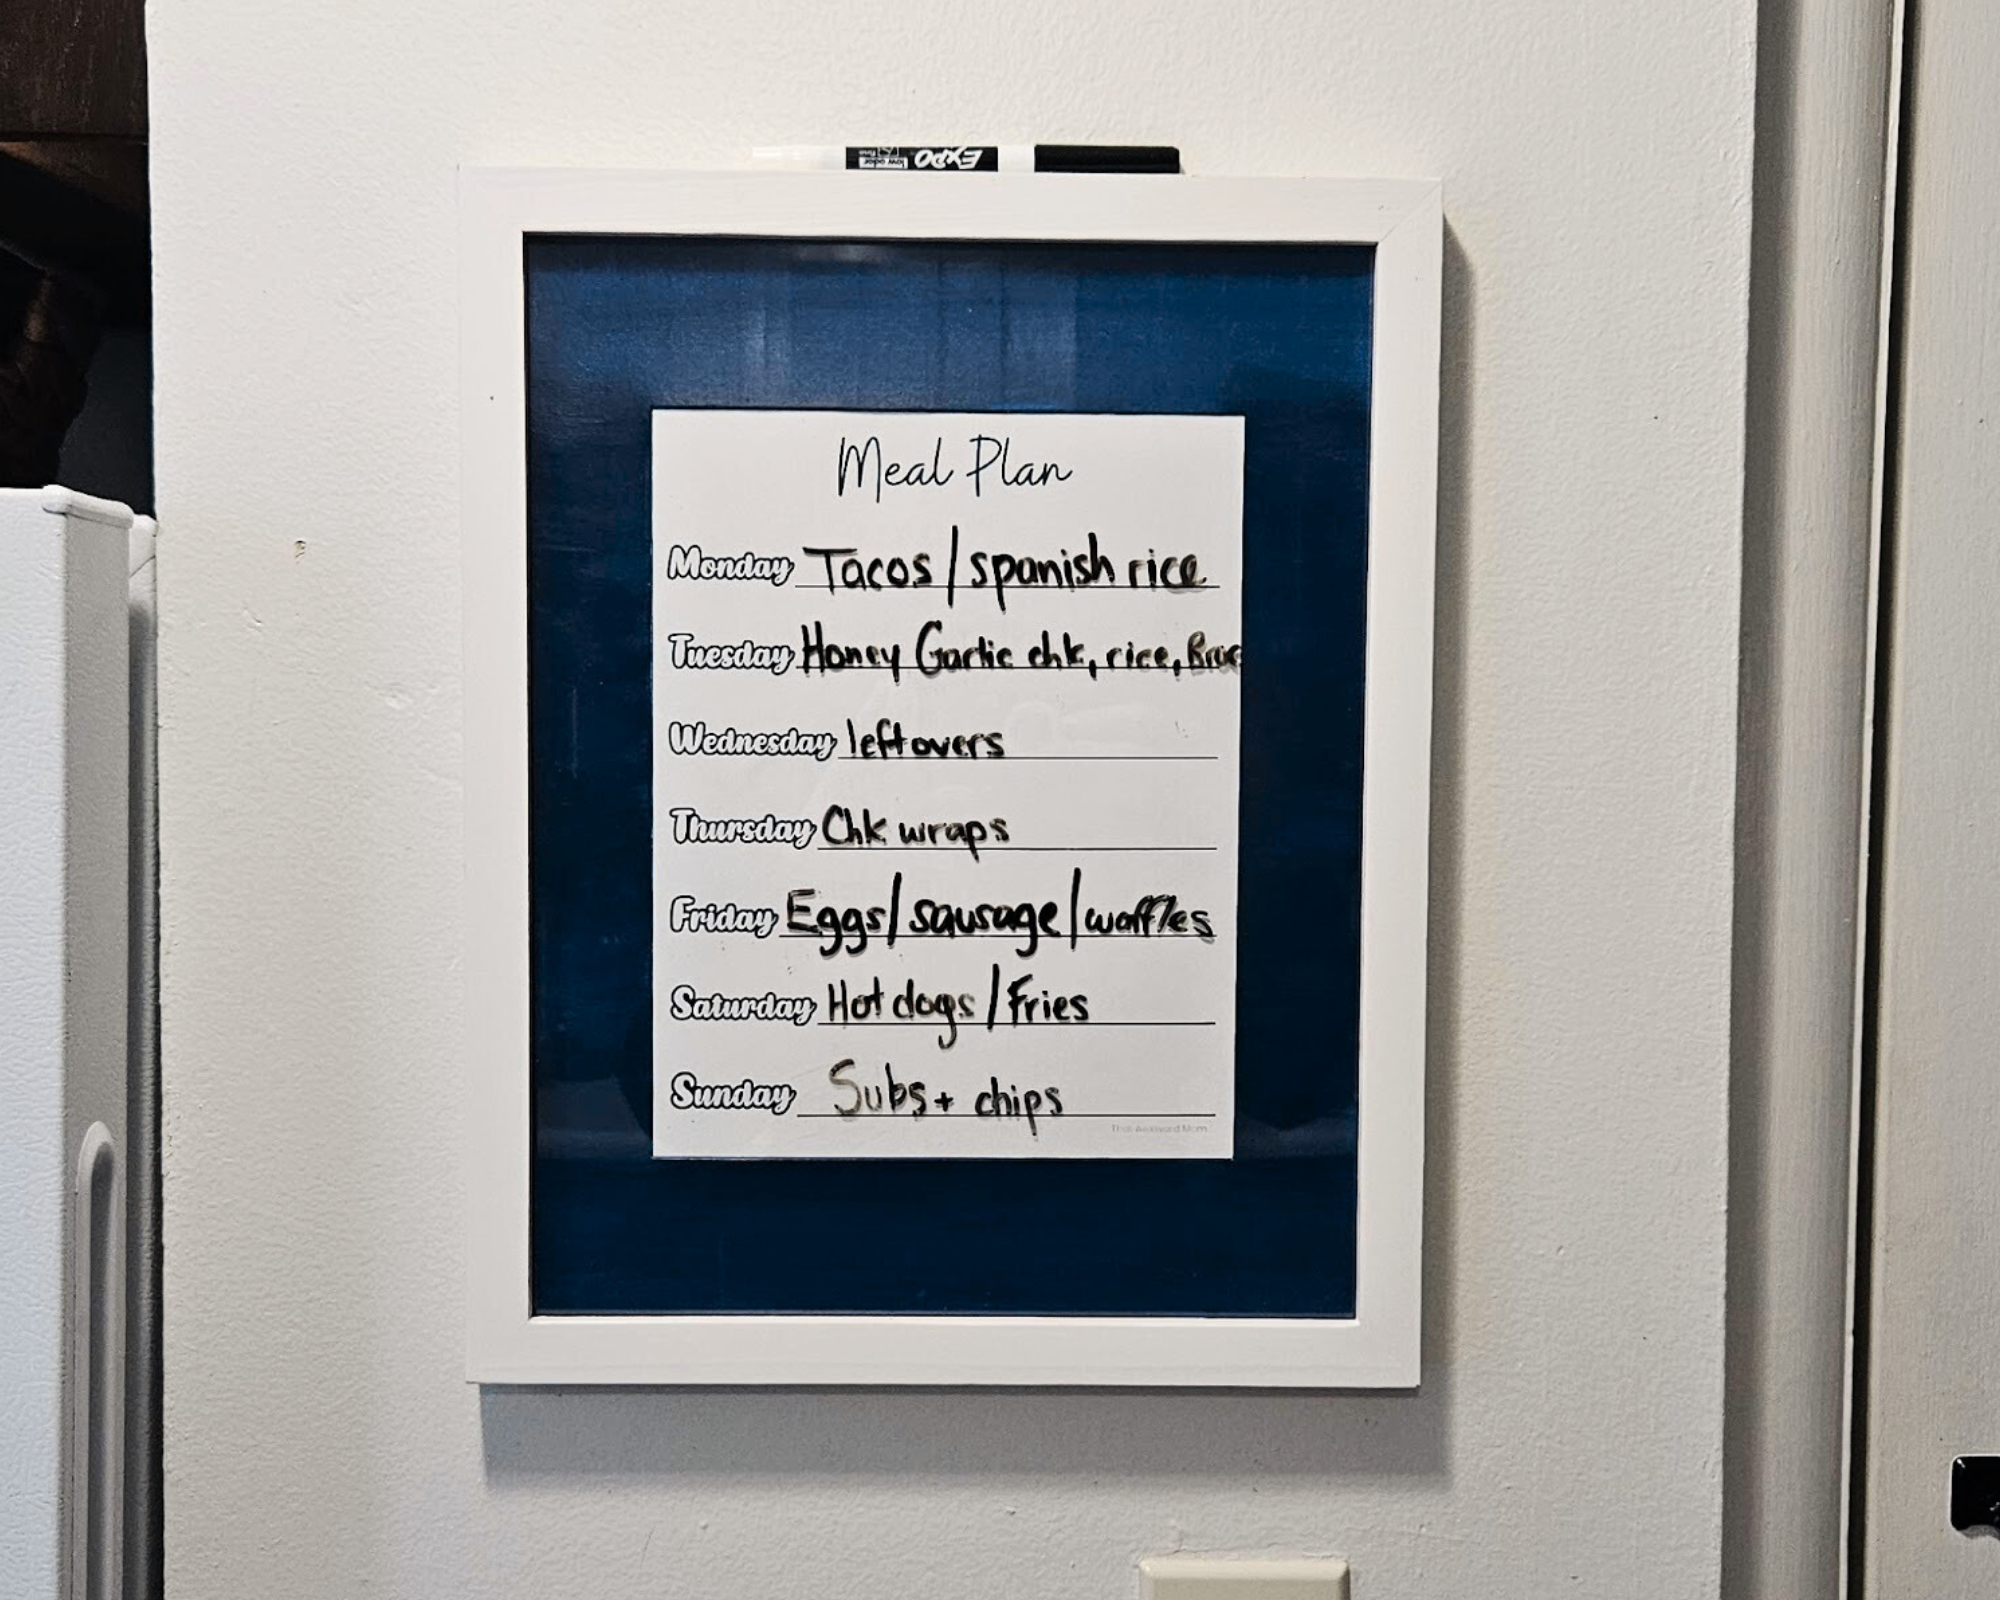 EXPO
low odor
fine
Meal Plan
Monday Tacos/spanish rice
Tuesday Honey Garlic chk, rice, Broc
Wednesday leftovers
Thursday Chk wraps
Friday Eggs/sausage/waffles
Saturday Hot dogs/Fries
Sunday Subs + chips
That Awkward Mom